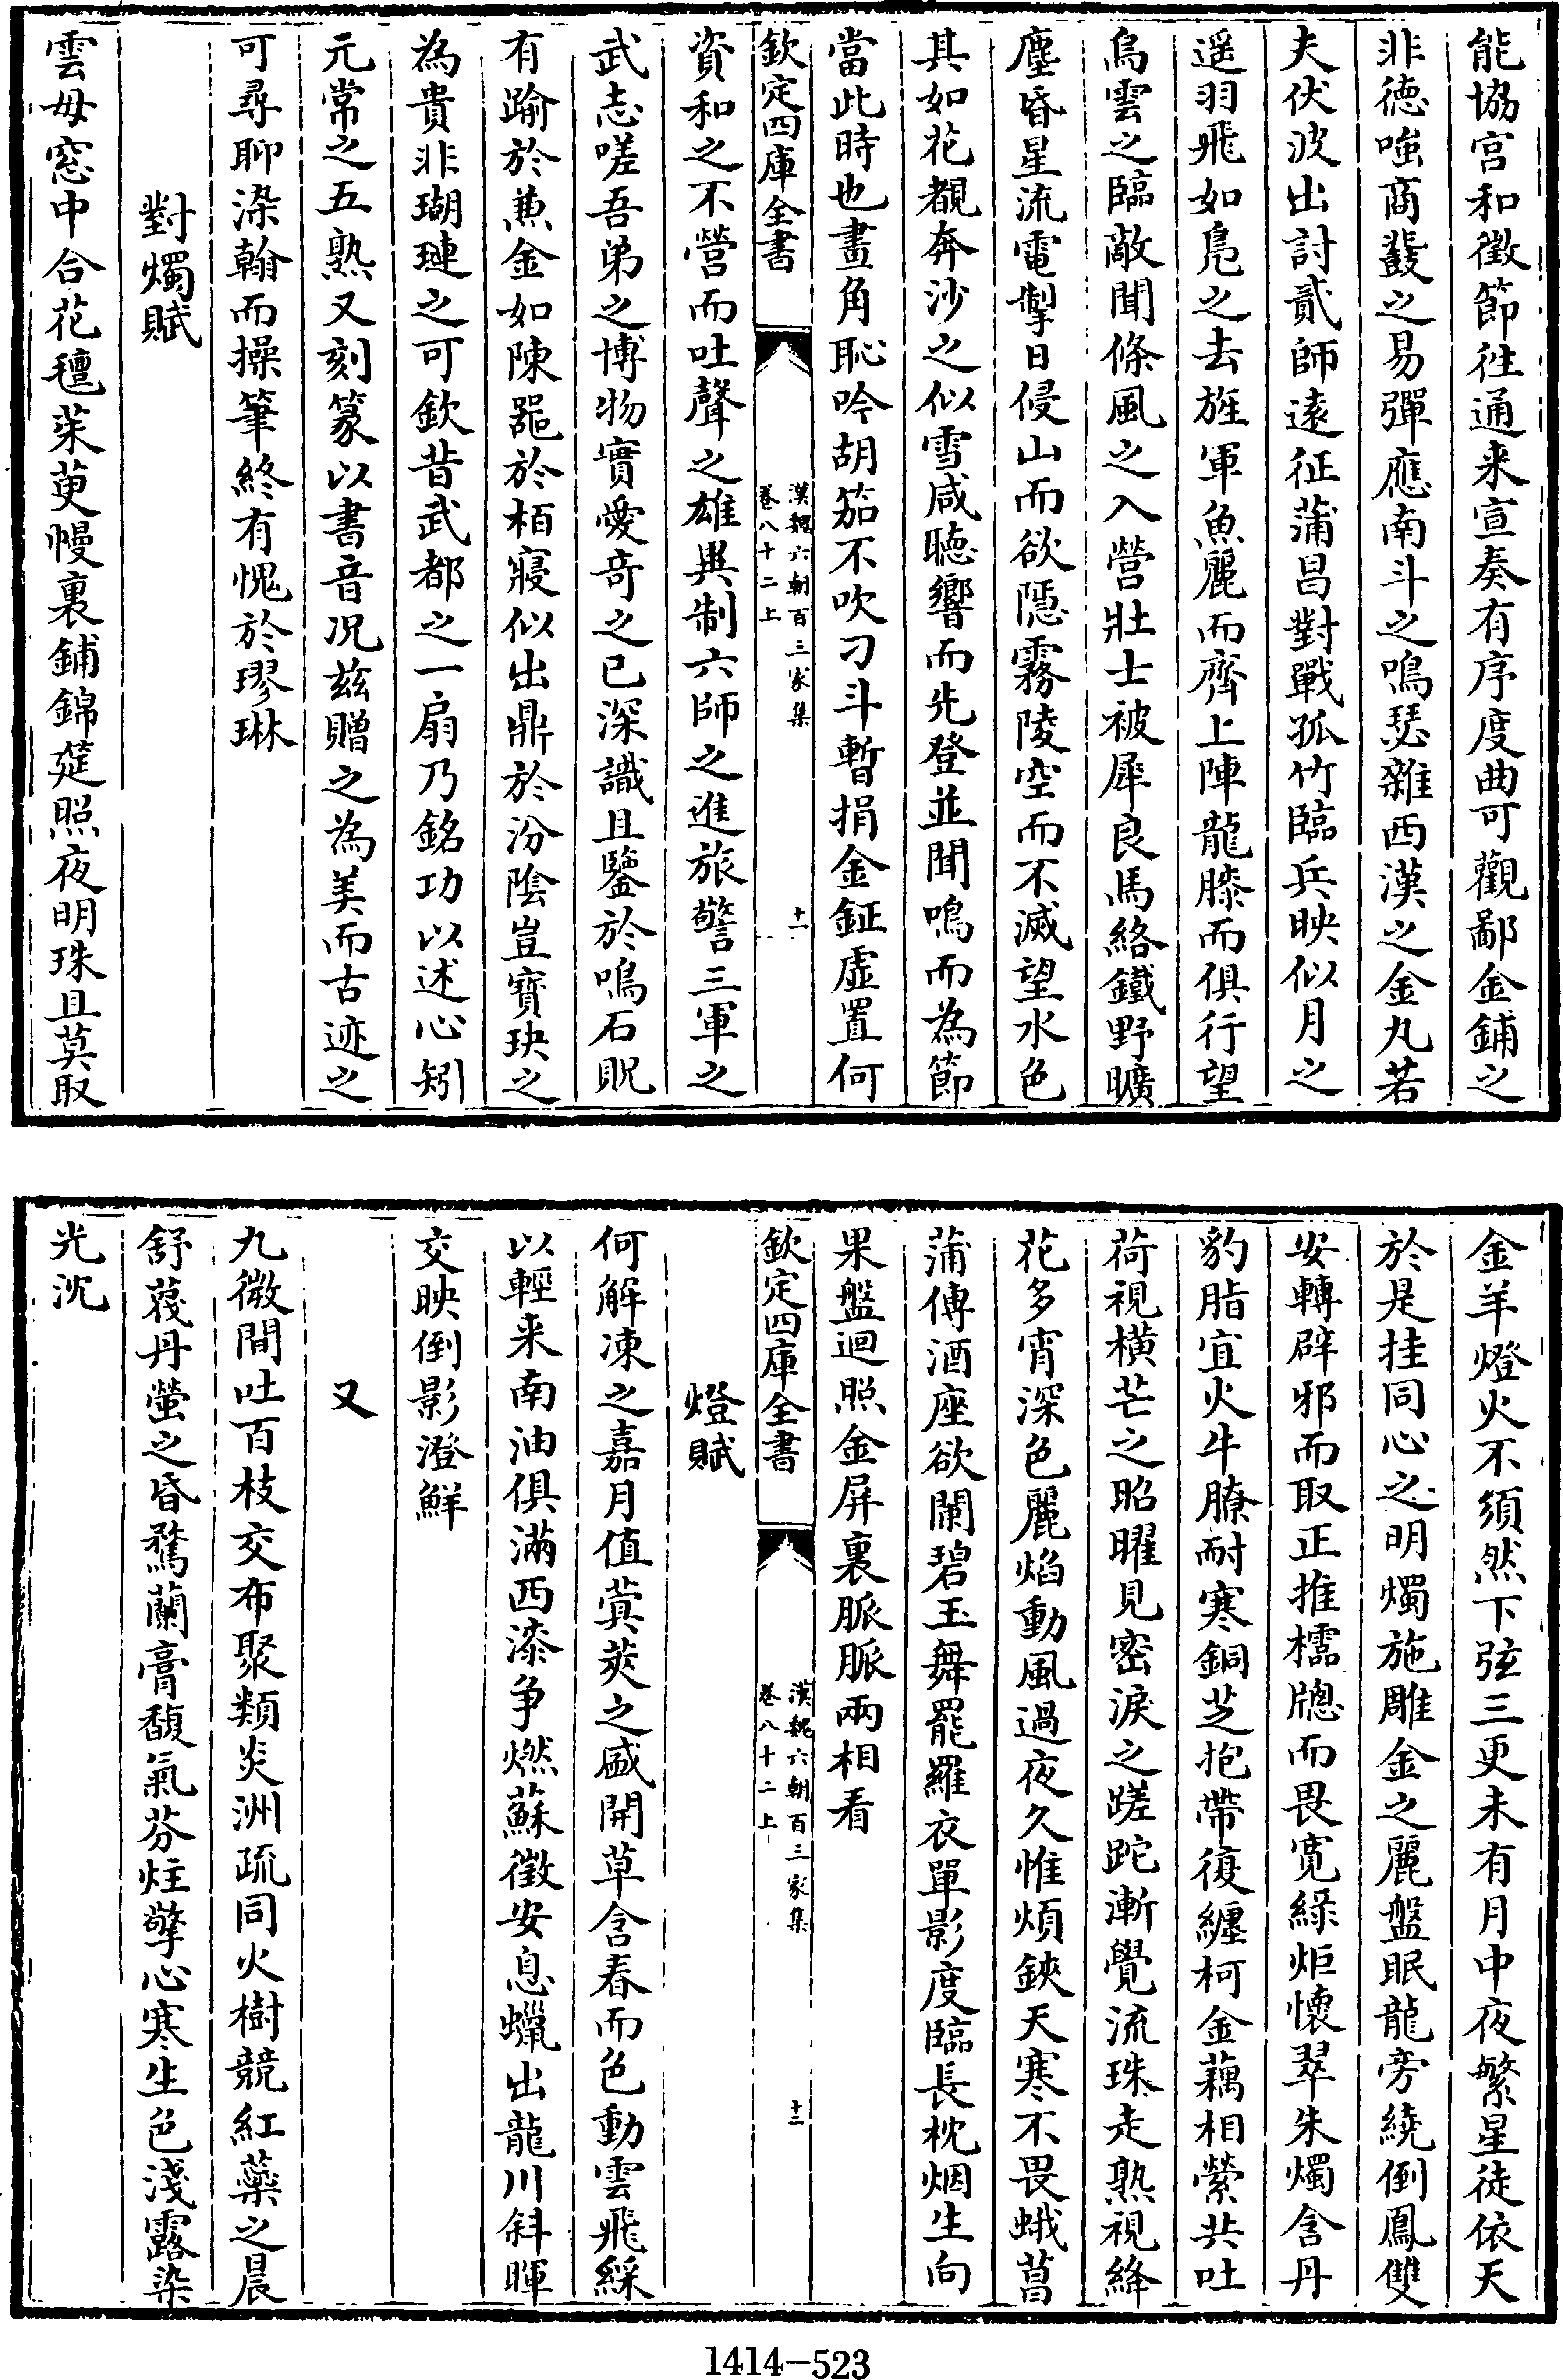 能協宫和徵節往通来宣奏有序度曲可觀鄙金鋪之
非徳嗤商蕤之易彈應南斗之鳴瑟雜西漢之金丸若
夫伏波出討貳師逺征蒲昌對戰孤竹臨兵映似月之
遥羽飛如鳬之去旌軍魚麗而齊上陣龍膝而俱行望
烏雲之臨敵聞條風之入營壯士被犀良馬絡鐵野曠
塵昏星流電掣日侵山而欲隠霧陵空而不滅望水色
其如花覩奔沙之似雪咸聴響而先登並聞鳴而為節
當此時也畫角恥吟胡笳不吹刁斗暫捐金鉦虚置何
欽定四庫全書
漢魏六朝百三家集
卷八十二上
十一
資和之不營而吐聲之雄異制六師之進旅警三軍之
武志嗟吾弟之博物實愛竒之已深識且鑒於鳴石貺
有踰於蒹金如陳噐於栢寢似出鼎於汾隂豈寳玦之
為貴非瑚璉之可欽昔武都之一扇乃銘功以述心矧
元常之五熟又刻篆以書音况兹贈之為美而古迹之
可尋聊染翰而操筆終有愧於璆琳
對燭賦
雲母窓中合花氊茱萸幔裏鋪錦筵照夜明珠且莫取
金羊燈火不須然下弦三更未有月中夜繁星徒依天
於是挂同心之明燭施雕金之麗盤眠龍旁繞倒鳳雙
安轉辟邪而取正推檽牎而畏寛緑炬懷翠朱燭含丹
豹脂宜火牛膫耐寒銅芝抱帶復纒柯金藕相縈共吐
荷視横芒之昭曜見密淚之蹉跎漸覺流珠走熟視絳
花多宵深色麗焰動風過夜久惟煩鋏天寒不畏蛾菖
蒲傳酒座欲闌碧玉舞罷羅衣單影度臨長枕烟生向
果盤迴照金屏裏脈脈兩相看
欽定四庫全書
漢魏六朝百三家集
卷八十二上
十二
燈賦
何解凍之嘉月值蓂莢之盛開草含春而色動雲飛綵
以輕来南油俱滿西漆争燃蘇徵安息蠟出龍川斜暉
交映倒影澄鮮
又
九微間吐百枝交布聚類炎洲疏同火樹競紅蘂之晨
舒蔑丹螢之昏騖蘭膏馥氣芬炷擎心寒生色淺露染
光沈
1414—523